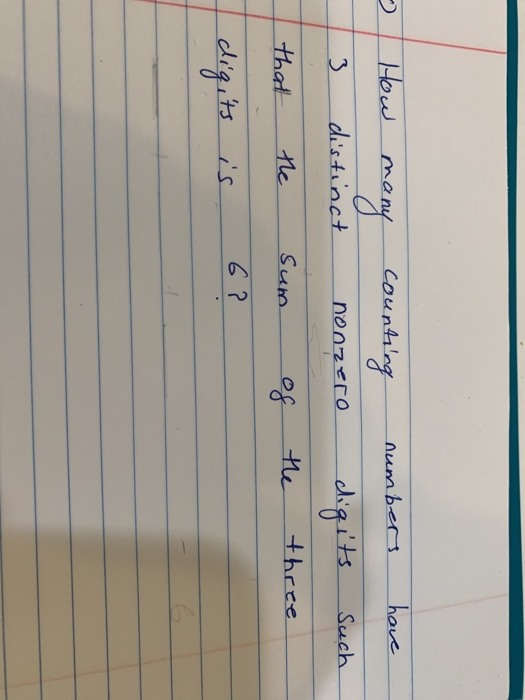 How many counting numbers have
3 distinct nonzero digits such
that the sum of the three
digits is 6?
6